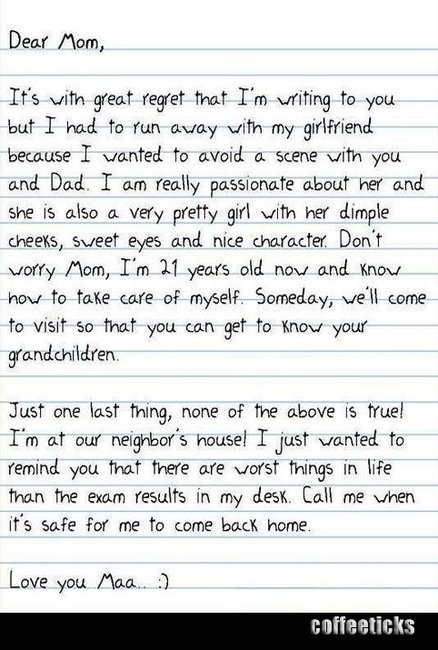 Dear Mom,
It's with great regret that I'm writing to you
but I had to run away with my girlfriend
because I wanted to avoid a scene with you
and Dad. I am really passionate about her and
she is also a very pretty girl with her dimple
cheeks, sweet eyes and nice character. Don't
worry Mom, I'm 21 years old now and know
how to take care of myself. Someday, we'll come
to visit so that you can get to know your
grandchildren.
Just one last thing, none of the above is true!
I'm at our neighbor's house! I just wanted to
remind you that there are worst things in life
than the exam results in my desk. Call me when
it's safe for me to come back home.
Love you Maa.. :)
coffeeticks